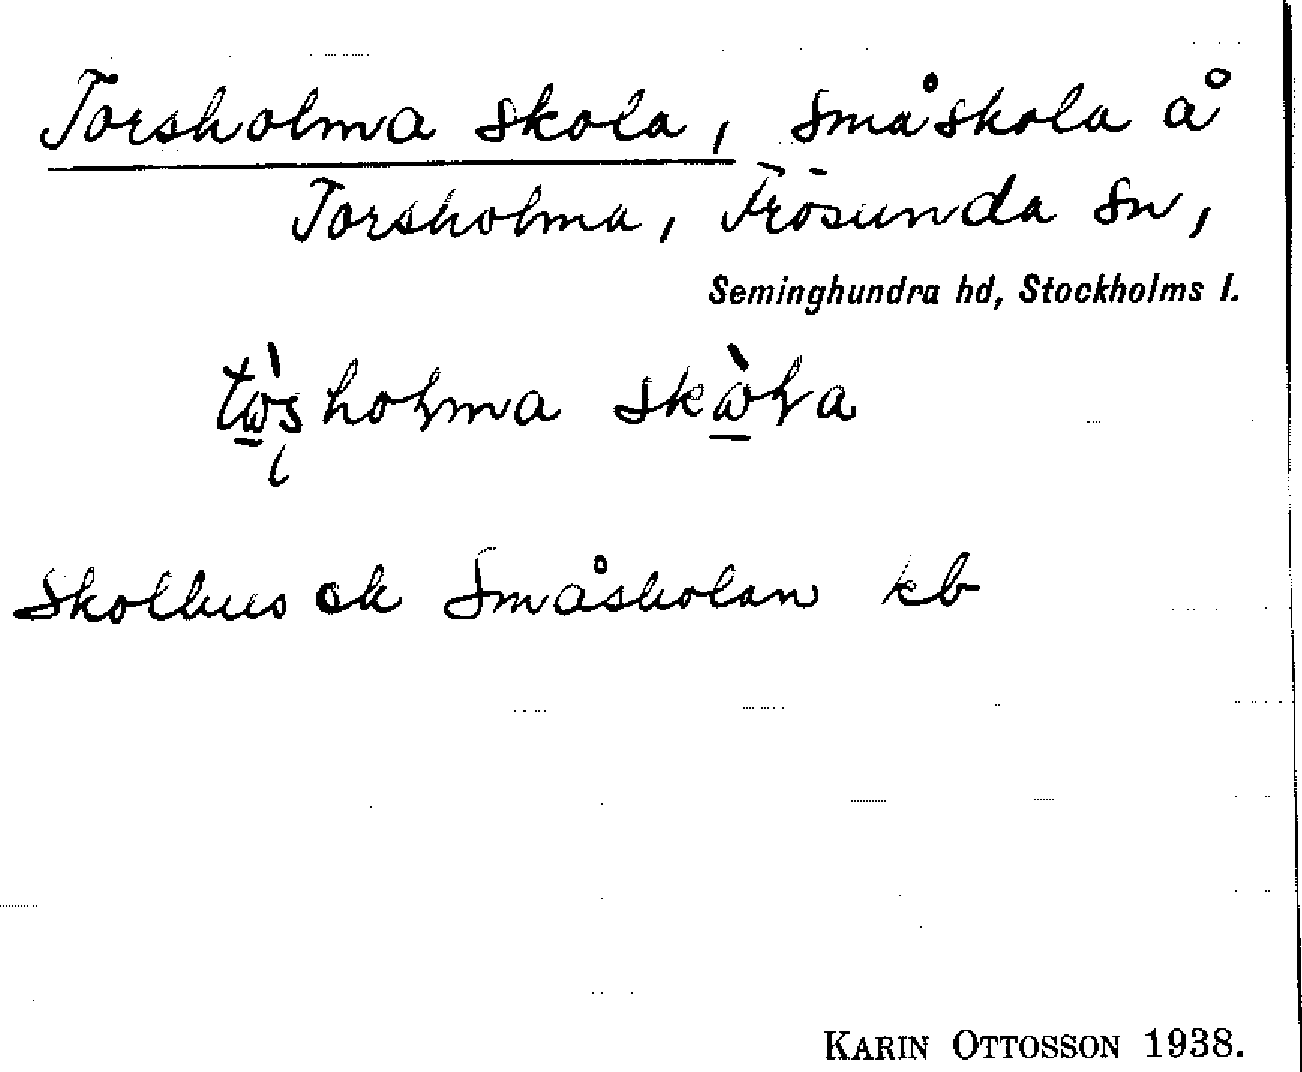 Torsholma skola, småskola å
Torsholma, Frösunda sn,
Seminghundra hd, Stockholms l.
tὼ̲s̩holma skὼ̲la
Skolhus ok Småskolan kb
KARIN OTTOSSON 1938.